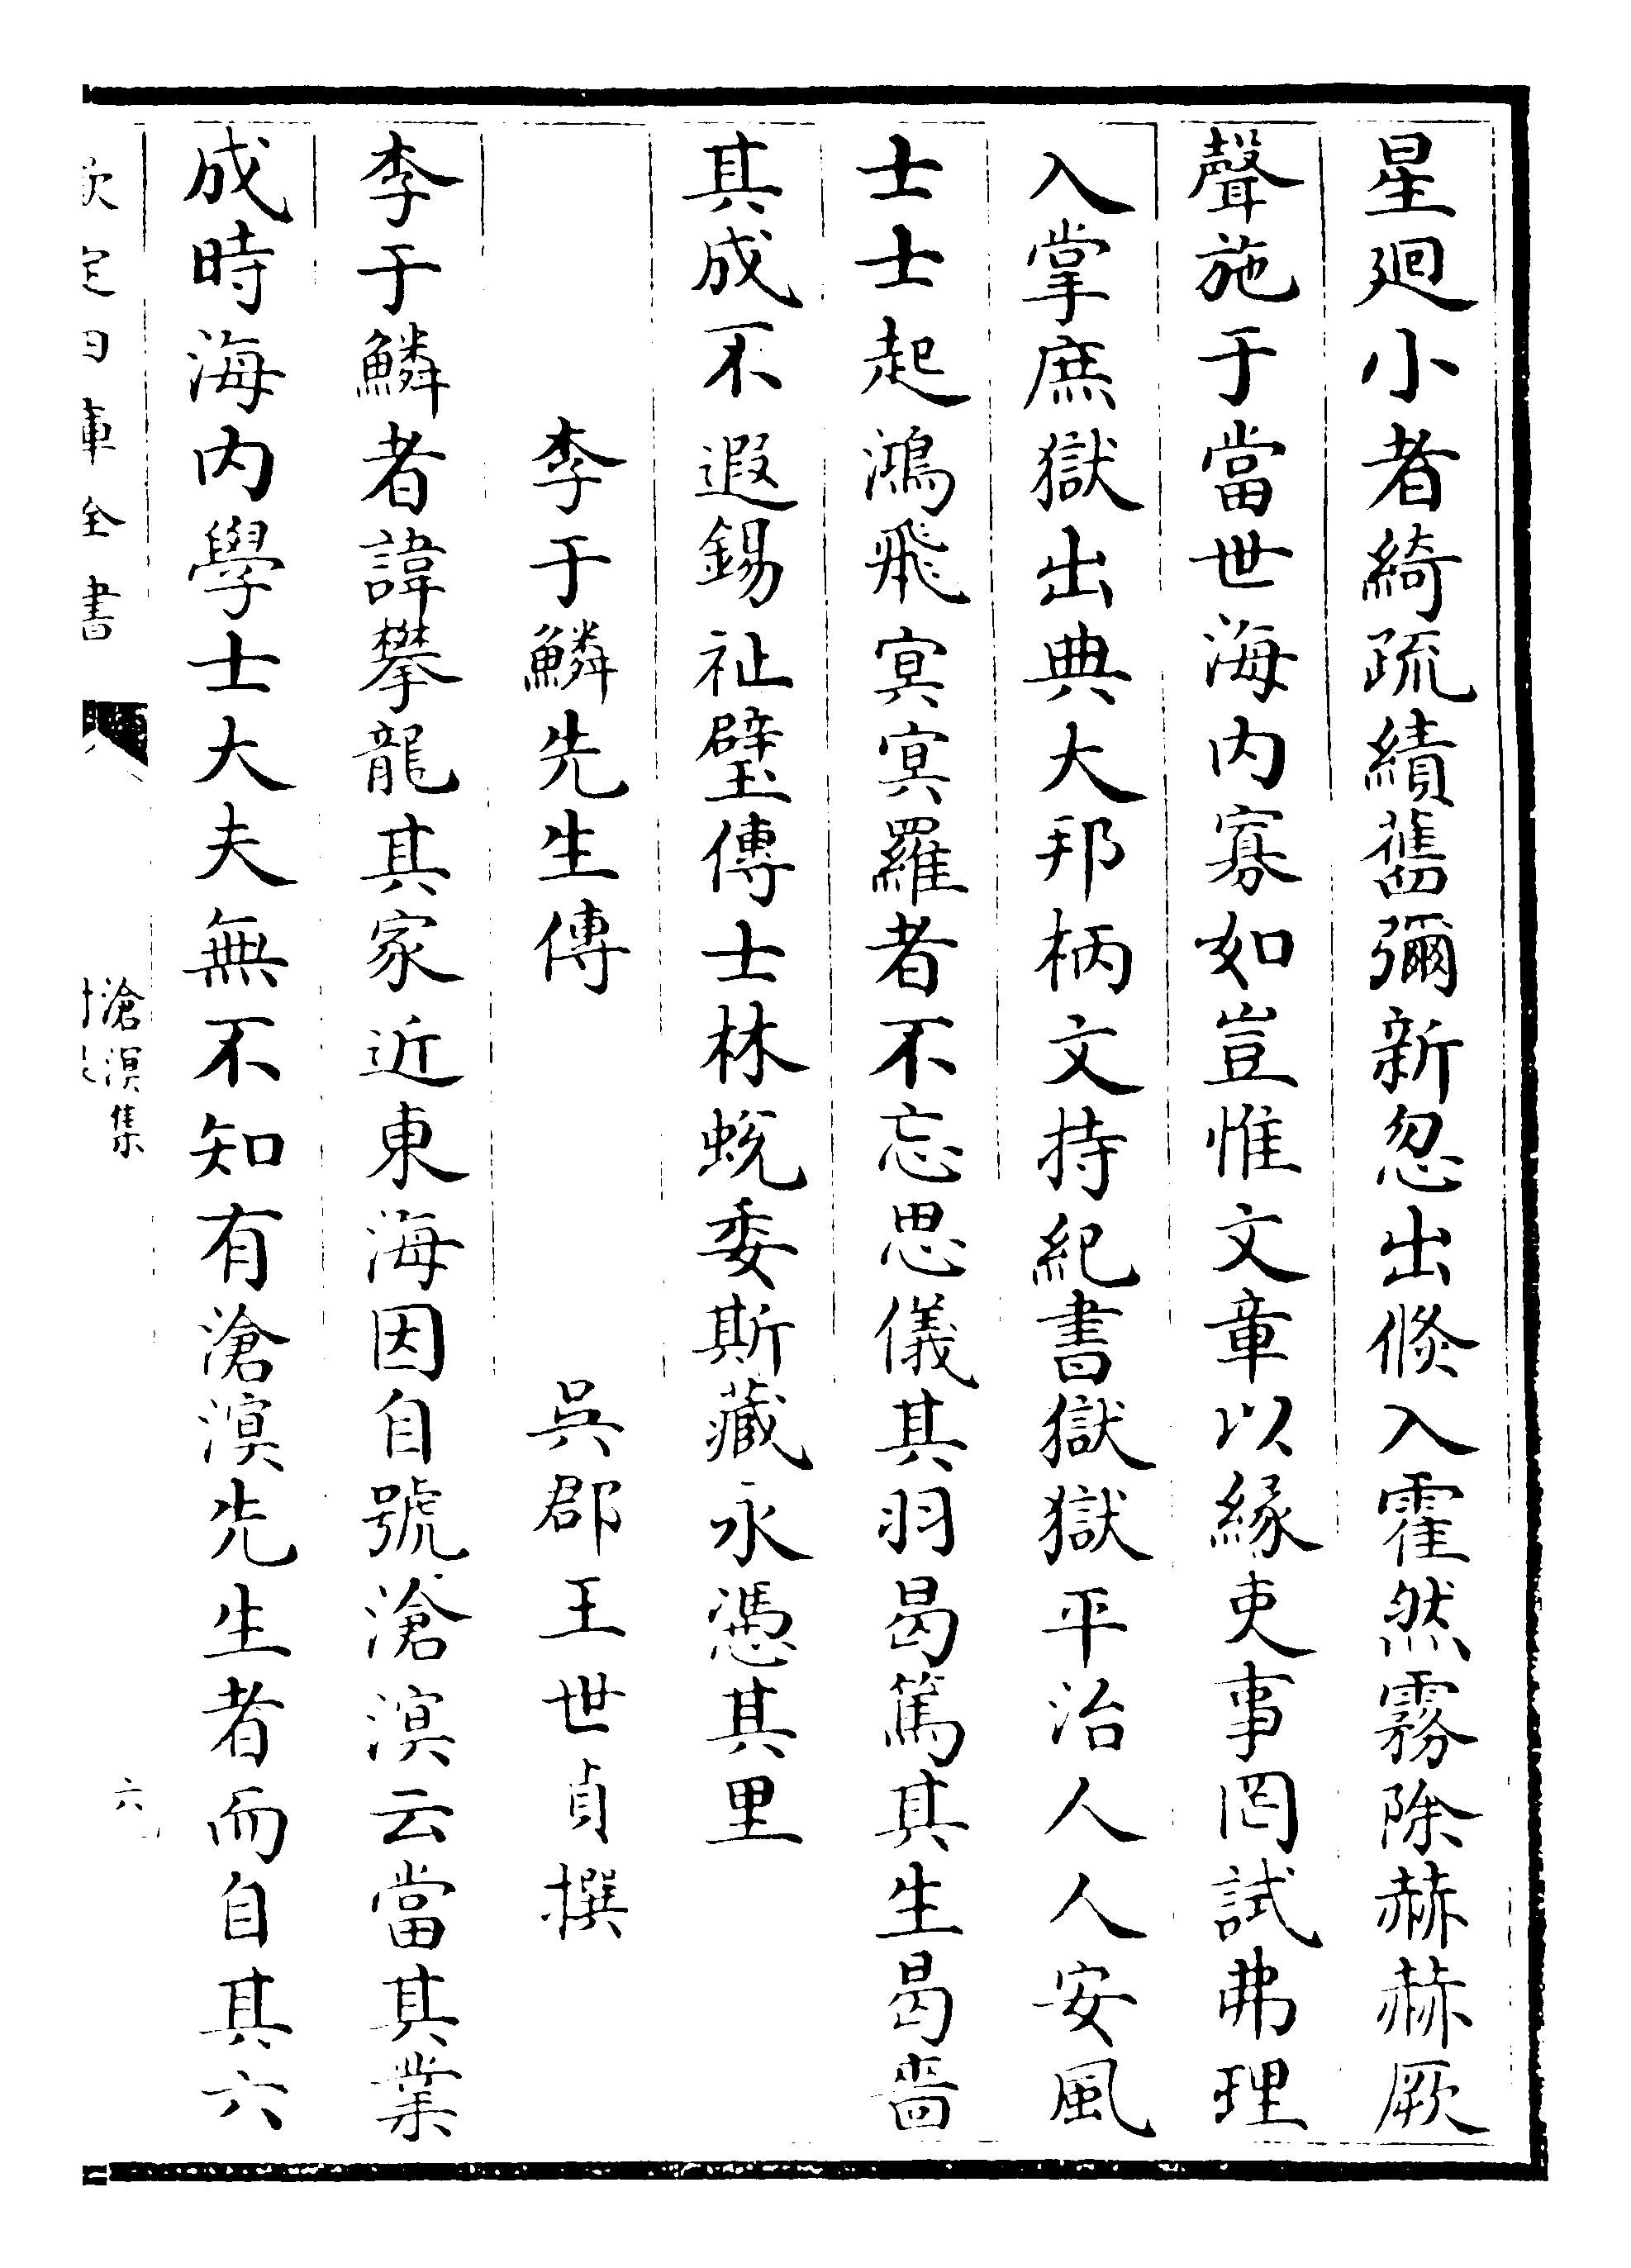 星廻小者綺疏績舊彌新忽出倐入霍然霧除赫赫厥
聲施于當世海內寡如豈惟文章以緣吏事罔試弗理
入掌庶獄出典大邦柄文持紀書獄獄平治人人安風
士士起鴻飛㝠㝠羅者不忘思儀其羽曷篤其生曷嗇
其成不遐錫祉璧傳士林蛻委斯藏永憑其里
李于鱗先生傳 吳郡王世貞撰
李于鱗者諱攀龍其家近東海因自號滄溟云當其業
成時海內學士大夫無不知有滄溟先生者而自其六
欽定四庫全書
滄溟集
六